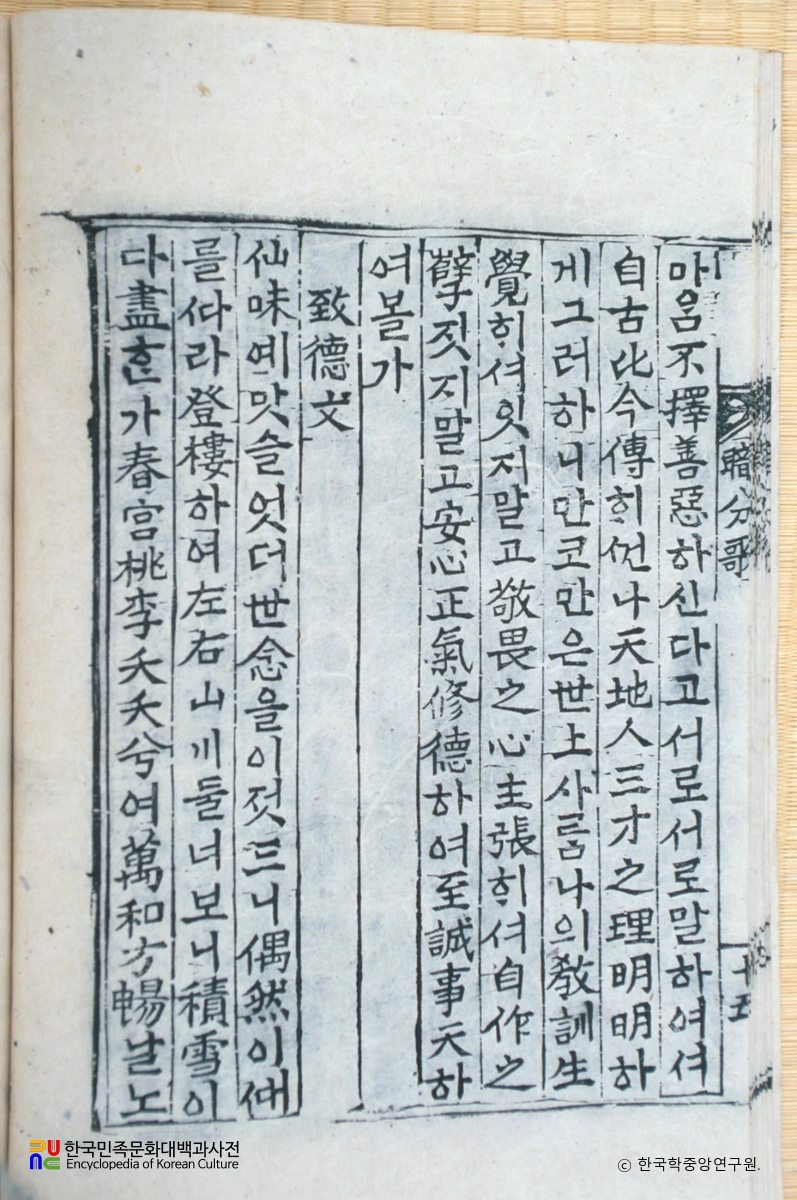 暗分歌
十五
마옴不擇善惡하신다고서로서로말하여셔
自古比今傳히썬나天地人三才之理明明하
게그러하니만코만은世上사룸나의敎訓生
覺히셔잇지말고敬畏之心主張히셔自作之
孼짓지말고安心正氣修德하여至誠事天하
여볼가
致德文
仙味예맛슬엇더世念을이젓드니偶然이春
를싸라登樓하여左右山川둘너보니積雪이
다盡흔가春宮桃李夭夭兮여萬和方暢날노
한국민족문화대백과사전
Encyclopedia of Korean Culture
© 한국학중앙연구원.